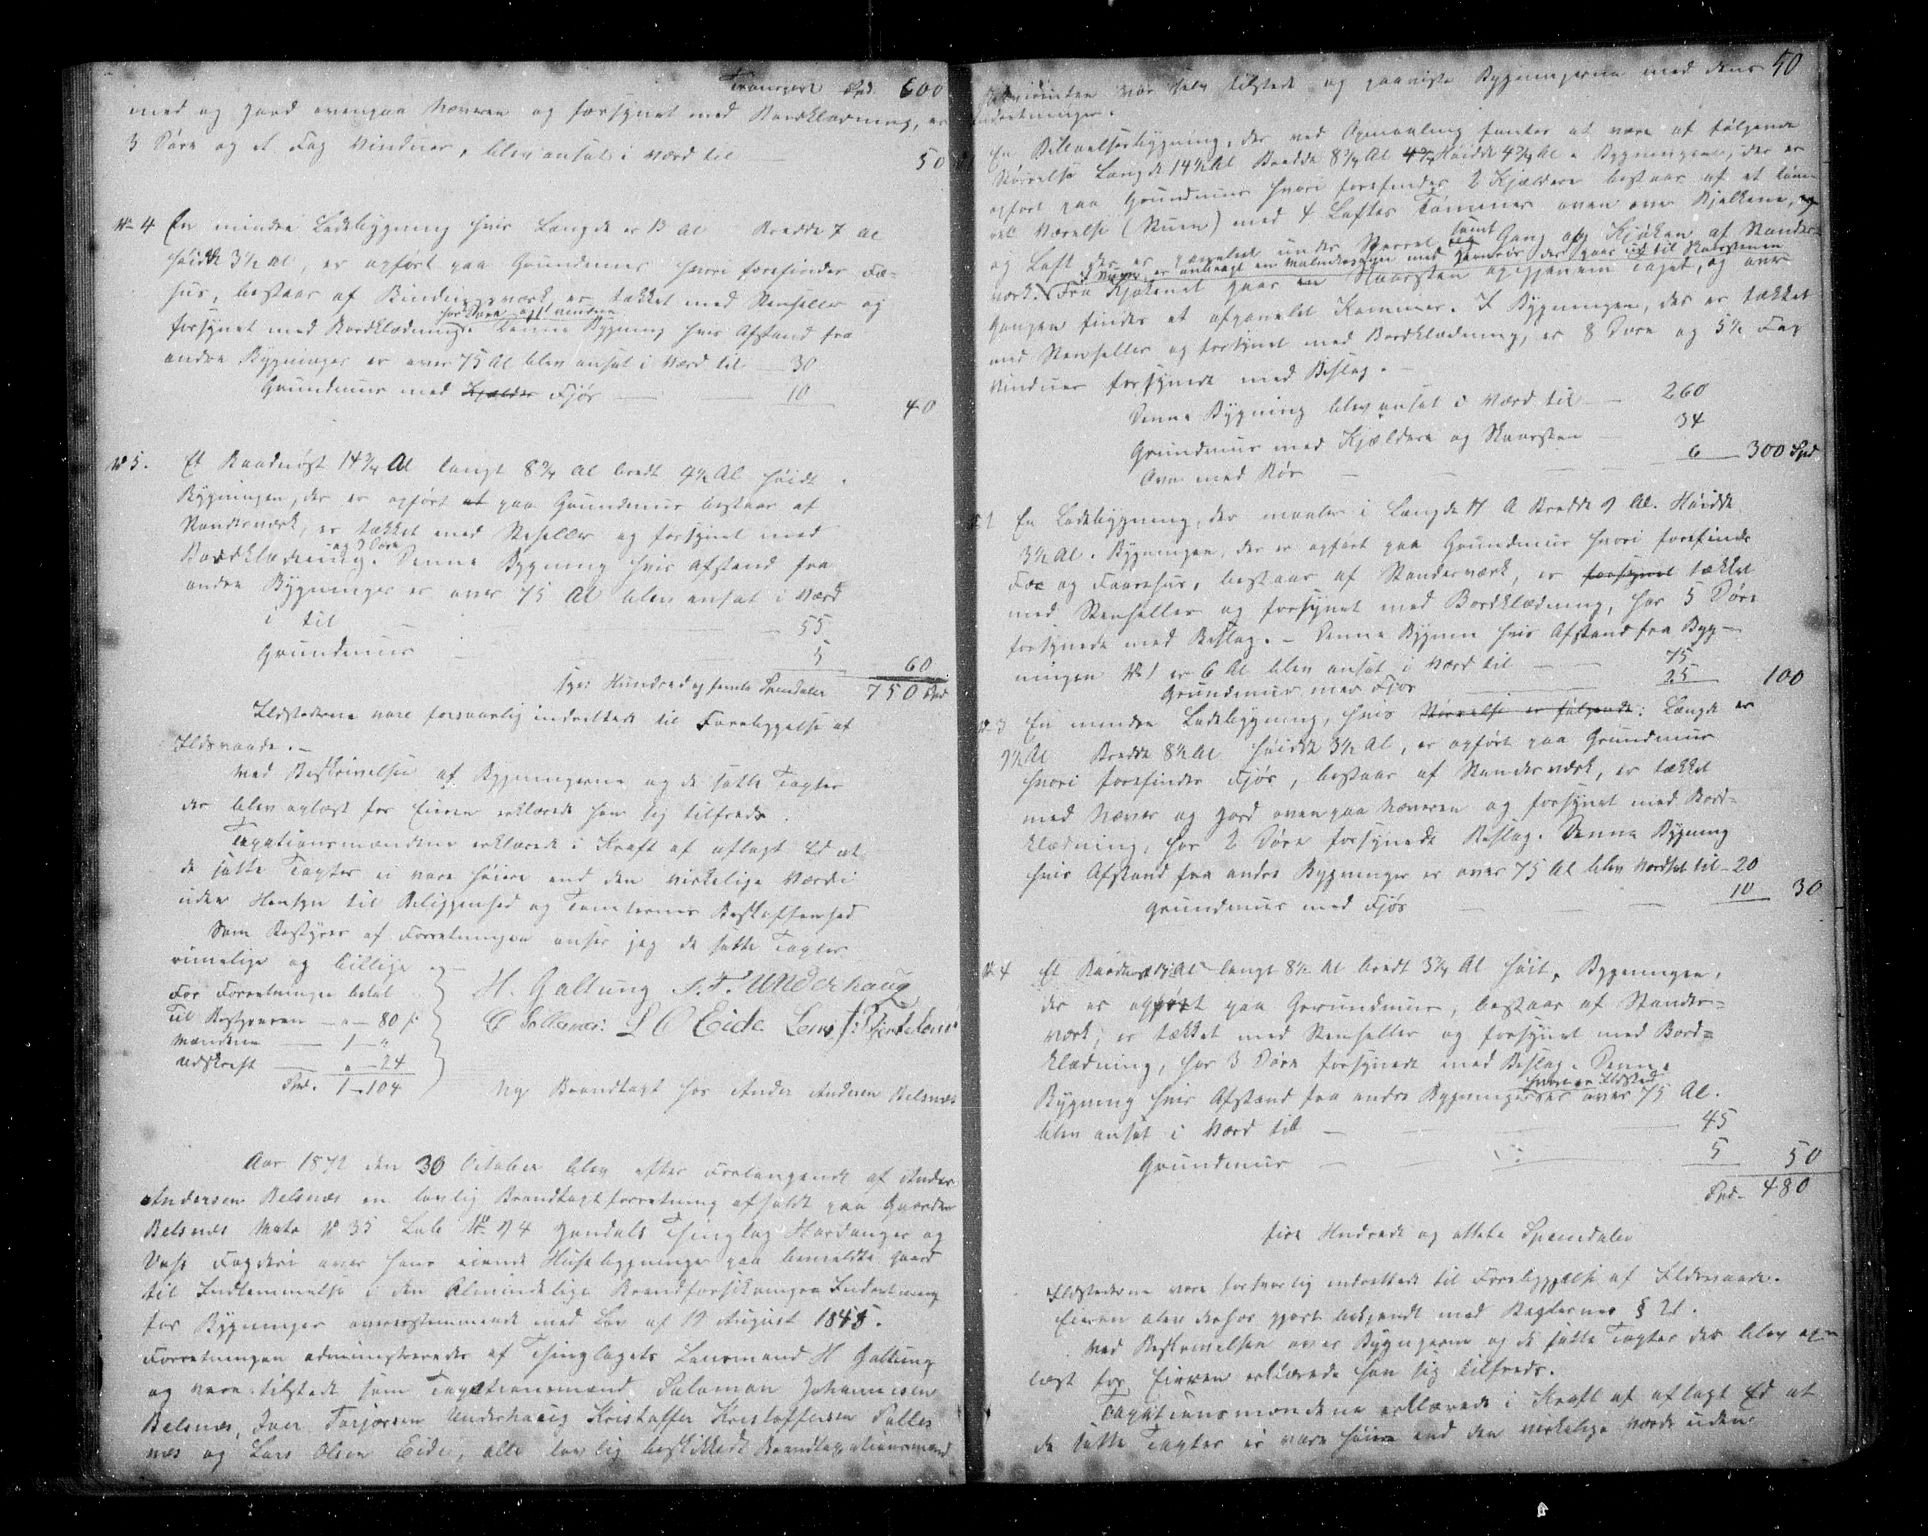 Transport Spd. 600
med og Jord ovenpaa Næveren og forsynet med Bordklædning, er
3 Døre og et Fag Vinduer, blev ansat i Værd til — 50
No 4 En mindre Ladebygning hvis Længde er 13 Al Bredde 7 Al
høide 3½ Al, er opført paa Grundmuur hvori forefindes Fæ-
hus, bestaar af Bindingsværk, er tækket med Stenheller og
forsynet med Bordklædning. Denne Bygning hvis Afstand fra
andre Bygninger er over 75 Al blev ansat i Værd til — 30
Grundmuur med Kjælder Fjøs — 10
40
No 5. Et Baadnøst 14¾ Al langt 8¾ Al bredt 4½ Al høidt.
Bygningen, der er opført at paa Grundmuur bestaar af
Standerværk, er tækket med Stenheller og forsynet med
og 3 Døre
Bordklædning. Denne Bygning hvis Afstand fra
andre Bygninger er over 75 Al blev ansat i Værd
i til — 55
Grundmuur — 5 60
syv Hundred og femti Speciedaler 750 Spd
Ildstederne vare forsvarlig indrettede til Forebyggelse af
Ildsvaade. —
Med Beskrivelsen af Bygningerne og de satte Taxter
der blev oplæst for Eieren erklærede han sig tilfreds.
Taxationsmændene erklærede i Kraft af aflagt Ed at
de satte Taxter ei vare høiere end den virkelige Værdi
uden Hensyn til Beliggenhed og Tomternes Beskaffenhed
Som Bestyrer af Forretningen anser jeg de satte Taxter
rimelige og billige og —
For Forretningen betalt
Til Bestyreren — „ — 80 s
Mændene — 1 — „
Udskrift — „ — 24
Spd. 1 — 104
H. Galtung I. T. Underhaug
L O Eide Lensm.
Ny Brandtaxt hos Anders Andersen Belsnæs
Aar 1872 den 30 October blev efter Forlangende af Anders
Andersen Belsnæs en lovlig Brandtaxtforretning afholdt paa Gaarden
Belsnæs Matr No 35 Løb No 94 Jondals Thinglag Hardanger og
Voss Fogderi over hans eiende Husebygninger paa bemeldte Gaard
til Indlemmelse i den Almindelige Brandforsikringen Indretning
for Bygninger overensstemmende med Lov af 19 August 1845.
Forretningen administreredes af Thinglagets Lensmand H Galtung
og vare tilstede som Taxationsmænd Salomon Johannesen
Belsnæs, Iver Torjørsen Underhaug Kristoffer Kristoffersen Solles
næs og Lars Olsen Eide, alle lovlig beskikkede Brandtaxationsmænd
50
Rekvirenten var selv tilstede og paaviste Bygningerne med dens
Indretninger.
En Beboelsesbygning, der ved Opmaaling fandtes at være af følgende
Størrelse Længde 14½ Al Bredde 8¾ Al 4¾ Høidde 4¾ Al. Bygningen, der er
opført paa Grundmuur hvori forefindes 2 Kjældere bestaar af et tøm-
ret Værelse (Stuen) med 4 Lofter Tømmer oven over Bjelkerne, og
samt
og Loft der er panelet under Sperret og Gang og Kjøken af Stander-
I Stuen er anbragt en Vindovn med Jernrør der gaar ud til Skorstenen
værk. Fra Kjøkenet gaar en Skorsten op gjennem Taget, og over
Gangen findes et afpanelet Kammer. I Bygningen, der er tækket
med Stenheller og forsynet med Bordklædning, er 8 Døre og 5½ Fag
Vinduer forsynede med Beslag. —
Denne Bygning blev ansat i Værd til — 260
Grundmuur med Kjældere og Skorsten — 34
Ovn med Rør — 6 — 300 Spd
En Ladebygning, der maaler i Længde 17 A Bredde 9 Al. Høidde
3½ Al. Bygningen, der er opført paa Grundmuur hvori forefindes
Fæ og Faarehus, bestaar af Standerværk, er forsynet tækket
med Stenheller og forsynet med Bordklædning, har 5 Døre
forsynede med Beslag. — Denne Bygning hvis Afstand fra Byg—
ningen No 1 er 6 Al blev ansat i Værd til — 75
Grundmuur med Fjøs — 25 — 100
No 3 En mindre Ladebygning, hvis Størrelse er følgende: Længde er
9½ Al Bredde 8½ Al høidde 3½ Al, er opført paa Grundmuur
hvori forefindes Fjøs, bestaar af Standerværk, er tækket
med Næver og Jord ovenpaa Næveren og forsynet med Bord=
klædning, har 2 Døre forsynede Beslag. Denne Bygning
hvis Afstand fra andre Bygninger er over 75 Al blev Værdsat til 20
Grundmuur med Fjøs — 10 30
No 4 Et Baadnøst langt 8½ Al bredt 3¾ Al høit. Bygningen,
der er opført paa Grundmuur, bestaar af Stander=
værk, er tækket med Stenheller og forsynet med Bord=
klædning, har 3 Døre forsynede med Beslag. Denne
hvori er Ildsted
Bygning hvis Afstand fra andre Bygninger er over 75 Al.
blev ansat i Værd til — 45
Grundmuur — 5 50
Spd. 480
fire Hundrede og ottete Speciedaler
Ildstederne vare forsvarlig indrettede til Forebyggelse af Ildsvaade.
Eieren blev derhos gjort bekjendt med Reglernes § 21.
Med Beskrivelsen over Bygningerne og de satte Taxter der blev op=
læst for Eieren erklærede han sig tilfreds.
Taxationsmændene erklærede i Kraft af aflagt Ed at
de satte Taxter ei vare høiere end den virkelige Værdi uden